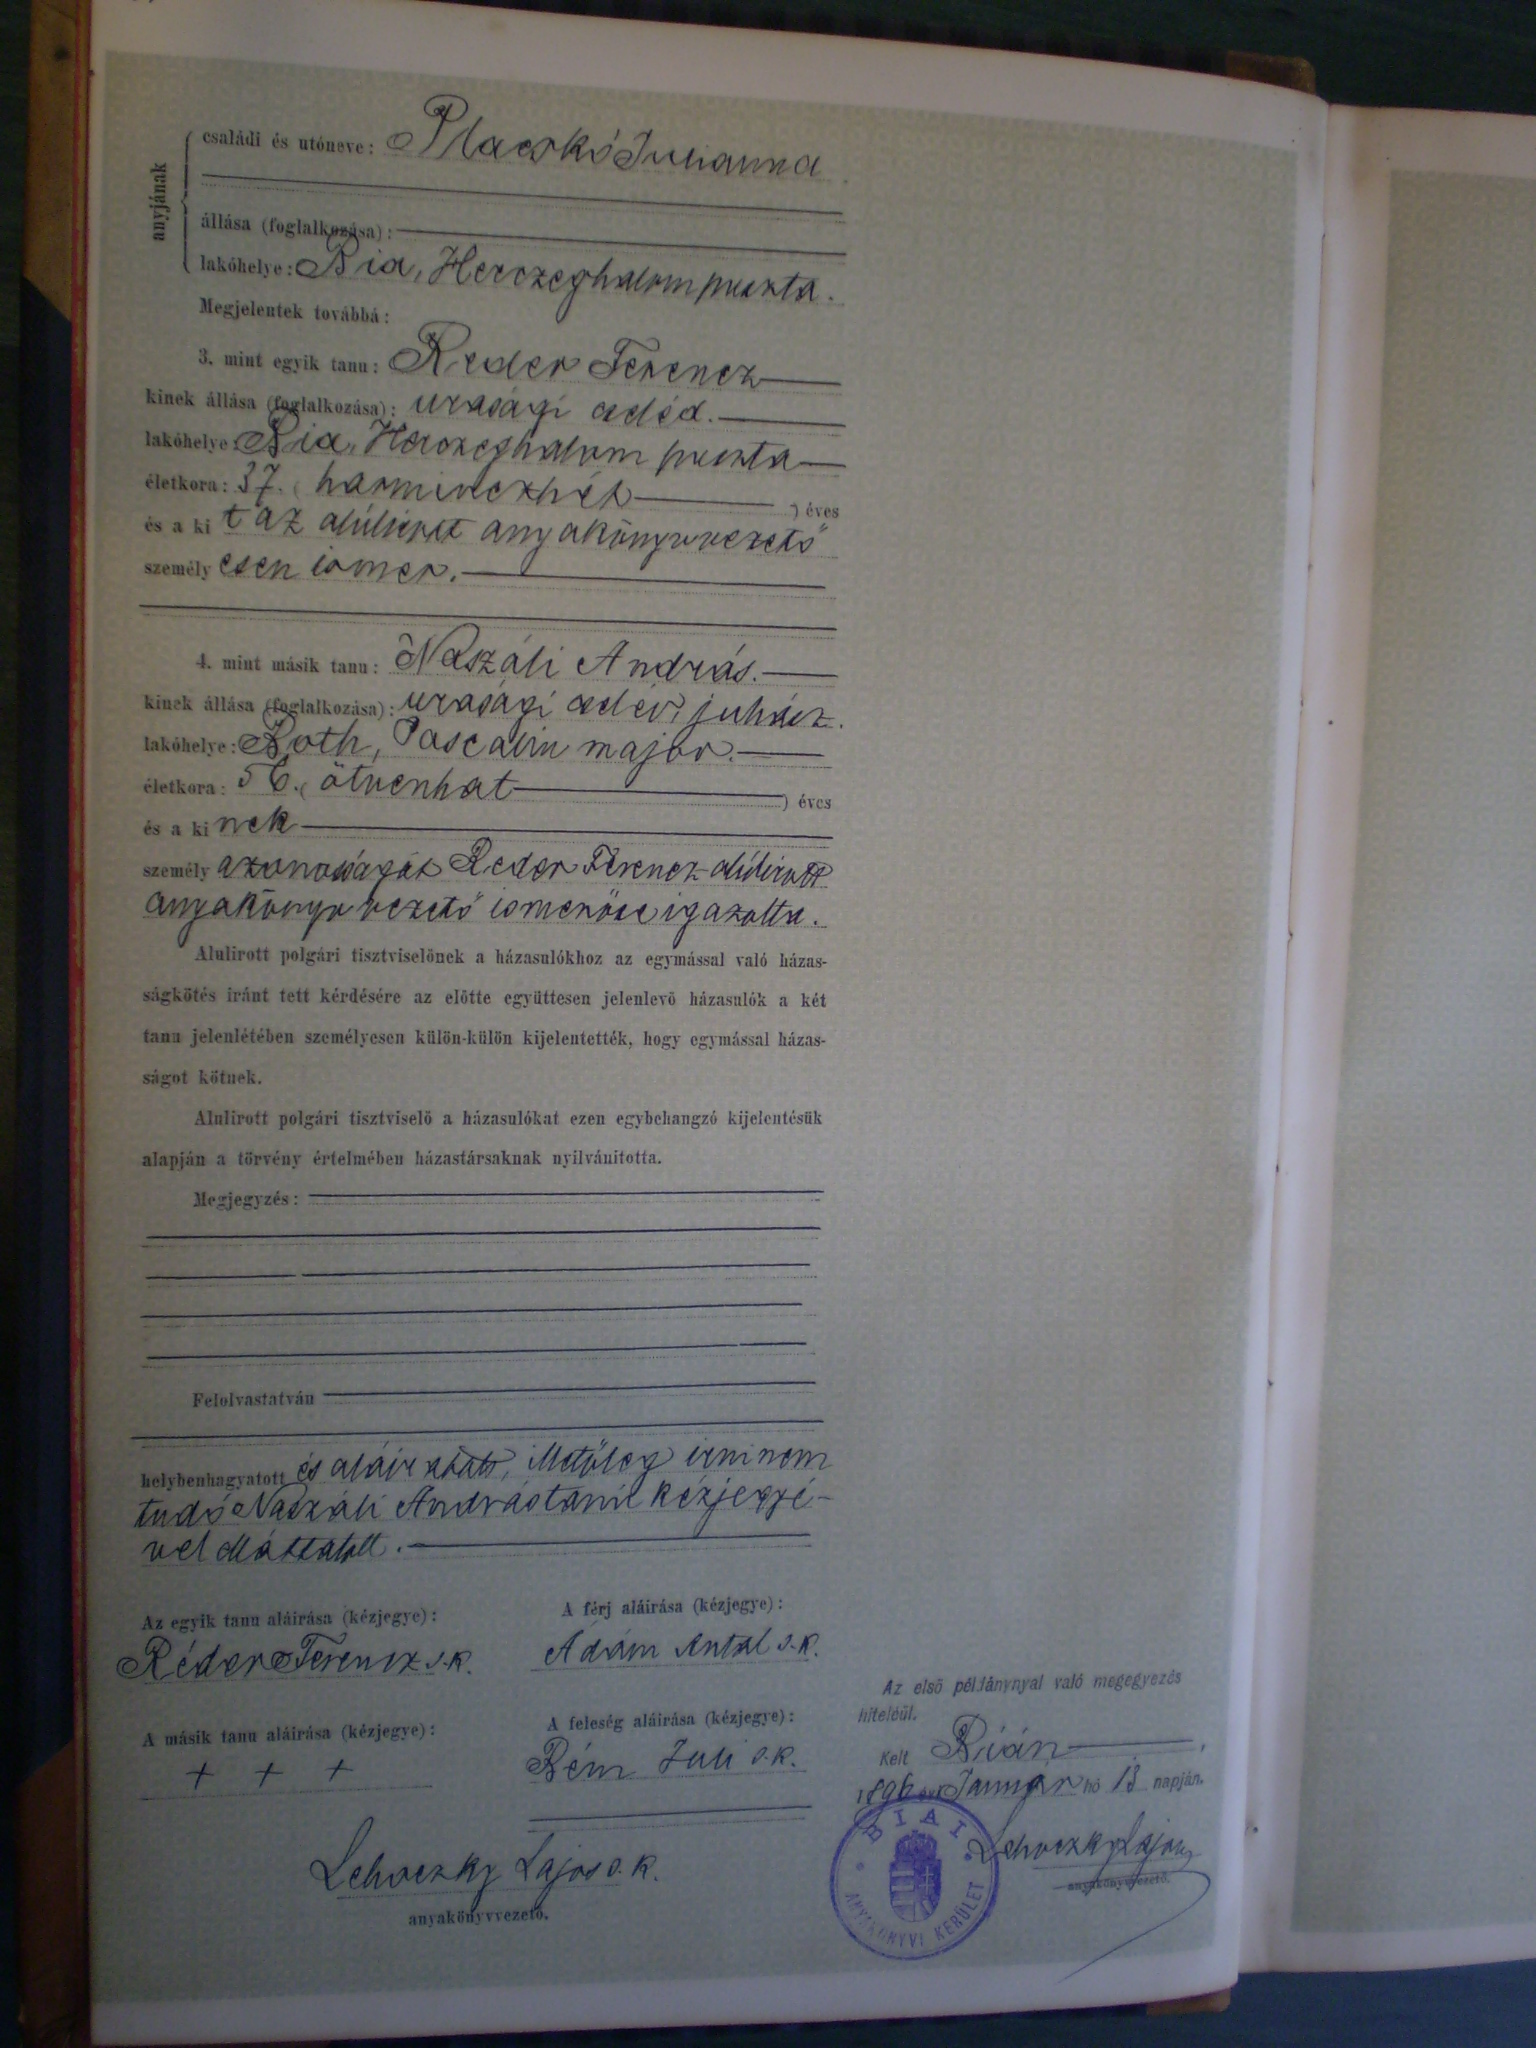 anyjának
családi és utóneve: Placskó Julianna
állása (foglalkozása):
lakóhelye: Bia, Herczeghalom puszta.
Megjelentek továbbá:
3. mint egyik tanu: Reder Ferencz
kinek állása (foglalkozása): urasági cseléd.
lakóhelye: Bia, Herczeghalom puszta
életkora: 37. (harminczhét) éves
és a kit az alúlírott anyakönyvvezető
személyesen ismer.
4. mint másik tanu: Naszáli András.
kinek állása (foglalkozása): urasági juhász.
lakóhelye: Both, Pascalin major.
életkora: 56. (ötvenhat) éves
és a kinek
személyazonosságát Reder Ferencz alúlirott
anyakönyvvezető ismerőse igazolta.
Alulirott polgári tisztviselőnek a házasulókhoz az egymással való házas-
ságkötés iránt tett kérdésére az előtte együttesen jelenlevő házasulók a két
tanu jelenlétében személyesen külön-külön kijelentették, hogy egymással házas-
ságot kötnek.
Alulirott polgári tisztviselő a házasulókat ezen egybehangzó kijelentésük
alapján a törvény értelmében házastársaknak nyilvánitotta.
Megjegyzés:
Felolvastatván
helybenhagyatott és aláiratott, illetőleg irni nem
tudó Naszáli András tanú kézjegyé-
vel elláttatott.
Az egyik tanu aláirása (kézjegye):
A férj aláirása (kézjegye):
Réder Ferencz s.k.
Ádám Antal s.k.
A másik tanu aláirása (kézjegye):
A feleség aláirása (kézjegye):
+ + +
Rém Juli s.k.
Lehoczky Lajos s.k.
anyakönyvvezető.
Az első példánynyal való megegyezés
hiteléül.
Kelt Bián,
1896 évi Január hó 13 napján.
Lehoczky Lajos
anyakönyvvezető.
BIAI
ANYAKÖNYVI KERÜLET